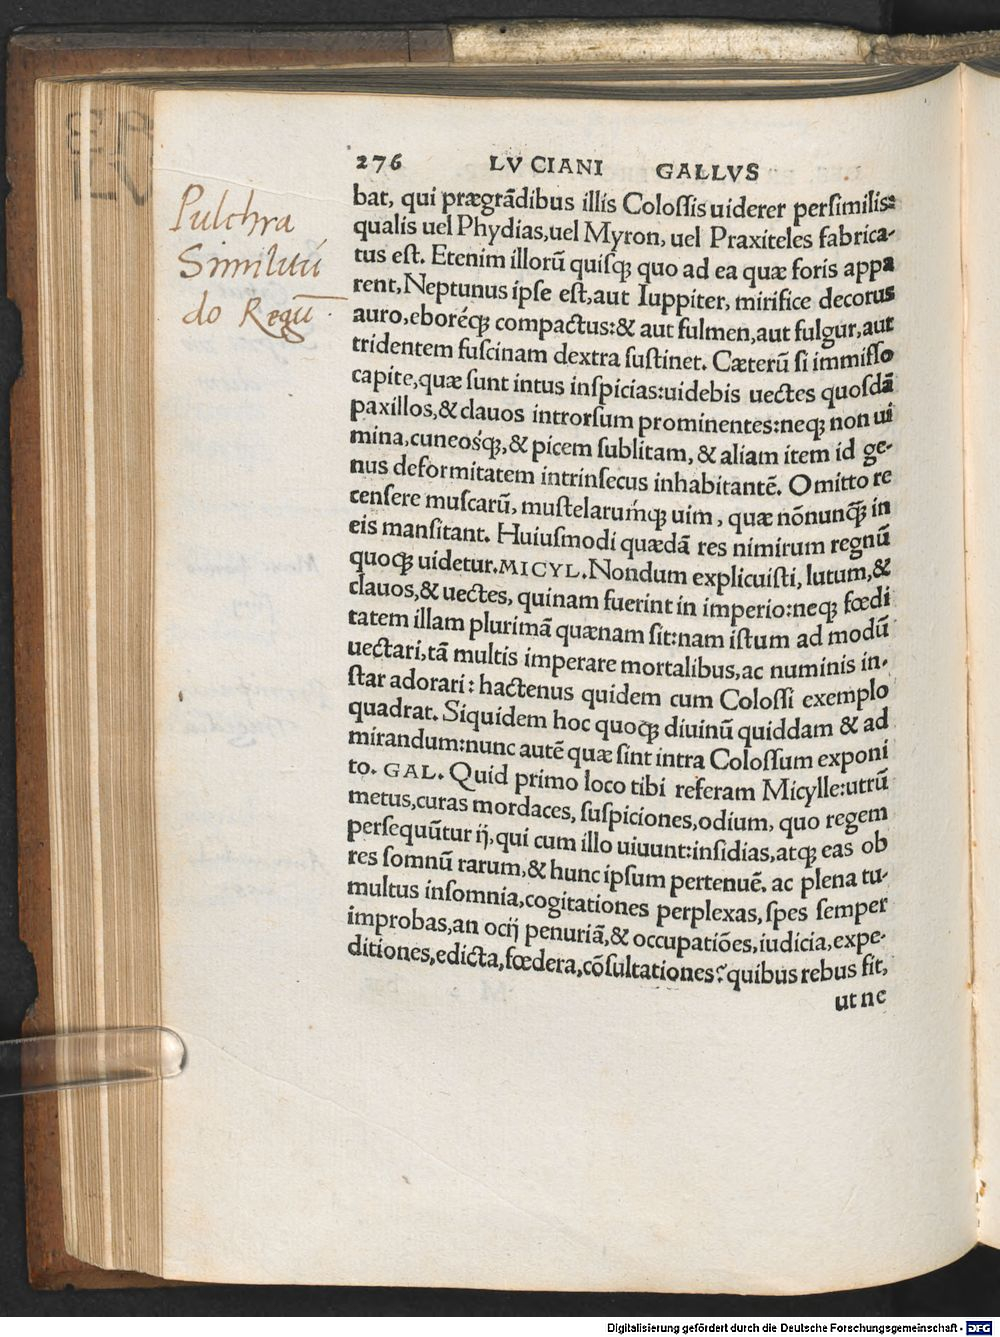 276 LVCIANI GALLVS
Pulchra
Similitū
do Regū
bat, qui prægrādibus illis Colossis uiderer persimilis:
qualis uel Phydias, uel Myron, uel Praxiteles fabrica-
tus est. Etenim illorū quisq; quo ad ea quæ foris appa
rent, Neptunus ipse est, aut Iuppiter, mirifice decorus
auro, eboréq; compactus: & aut fulmen, aut fulgur, aut
tridentem fuscinam dextra sustinet. Cæterū si immisso
capite, quæ sunt intus inspicias: uidebis uectes quosdā
paxillos, & clauos introrsum prominentes: neq; non ui
mina, cuneosq́;, & picem sublitam, & aliam item id ge-
nus deformitatem intrinsecus inhabitantē. Omitto re
censere muscarū, mustelarumq́; uim, quæ nōnunq̃ in
eis mansitant. Huiusmodi quædā res nimirum regnū
quoq; uidetur. MICYL. Nondum explicuisti, lutum, &
clauos, & uectes, quinam fuerint in imperio: neq; fœdi
tatem illam plurimā quænam sit: nam istum ad modū
uectari, tā multis imperare mortalibus, ac numinis in-
star adorari: hactenus quidem cum Colossi exemplo
quadrat. Siquidem hoc quoq; diuinū quiddam & ad
mirandum: nunc autē quæ sint intra Colossum exponi
to. GAL. Quid primo loco tibi referam Micylle: utrū
metus, curas mordaces, suspiciones, odium, quo regem
persequūtur ij, qui cum illo uiuunt: insidias, atq; eas ob
res somnū rarum, & hunc ipsum pertenuē. ac plena tu-
multus insomnia, cogitationes perplexas, spes semper
improbas, an ocij penuriā, & occupatiōes, iudicia, expe-
ditiones, edicta, fœdera, cōsultationes? quibus rebus fit,
ut ne
Digitalisierung gefördert durch die Deutsche Forschungsgemeinschaft - DFG